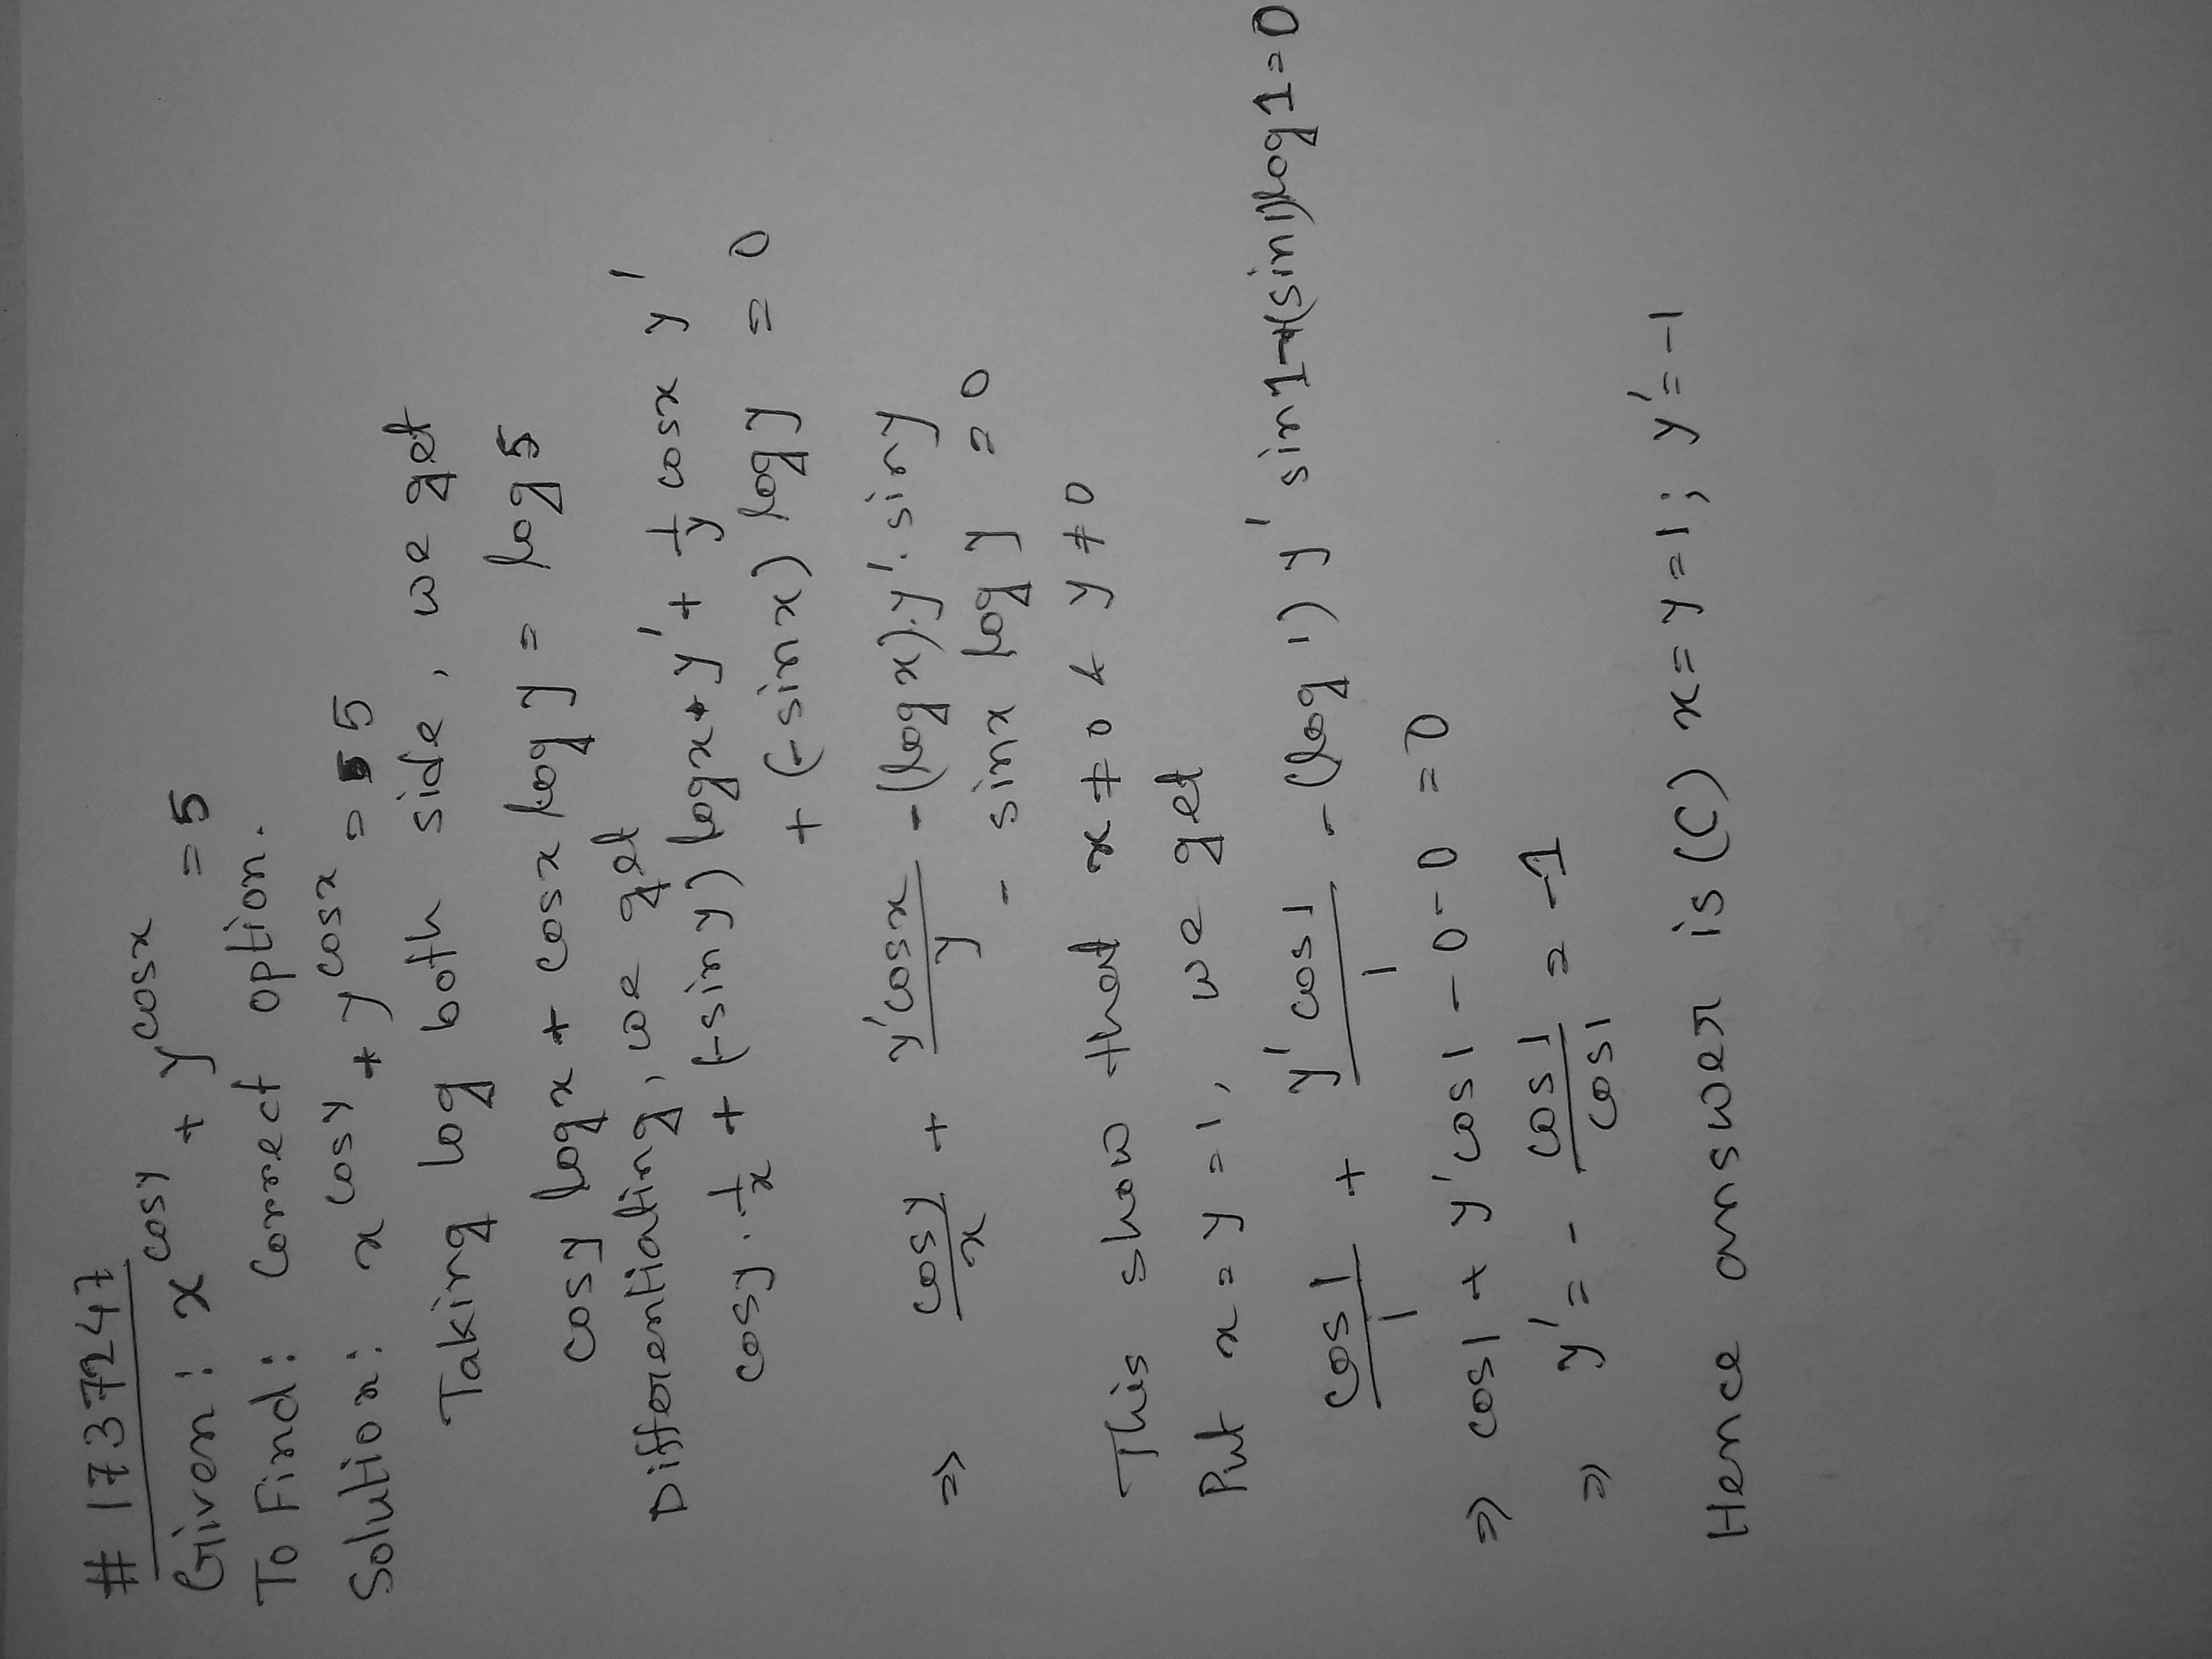 # 1737247
Given: x^cosy + y^cosx = 5
To Find: Correct option.
Solution: x^cosy + y^cosx = 5
Taking log both side, we get
cosy logx + cosx logy = log5
Differentiating, we get
cosy · 1/x + (-siny) logx · y' + 1/y cosx y'
+ (-sinx) logy = 0
⇒ cosy/x + y'cosx/y - (logx)·y'·siny
- sinx logy = 0
This show that x ≠ 0 & y ≠ 0
Put x = y = 1, we get
cos1/1 + y'cos1/1 - (log1) y' sin1 - (sin1)log1 = 0
⇒ cos1 + y'cos1 - 0 - 0 = 0
⇒ y' = - cos1/cos1 = -1
Hence answer is (C) x = y = 1; y' = -1